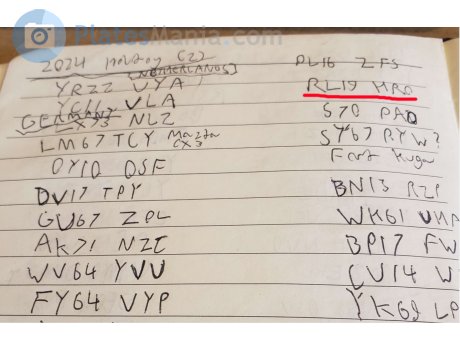 PlatesMania.com
2024 Holiday (2)
[NETHERLANDS]
YRZZ VYA
VLA
GERMANY
NLZ
LM67 TCY Mazda CX3
OY10 OSF
DV17 TPY
GU67 ZPL
AK71
WV64 YVU
FY64 VYP
DL16 ZFS
RL19 HRO
S70 PAO
SY67 RYW?
Ford Kuga
BN13 RZP
WK61
BP17 FW
CV14 W
YK69 LP